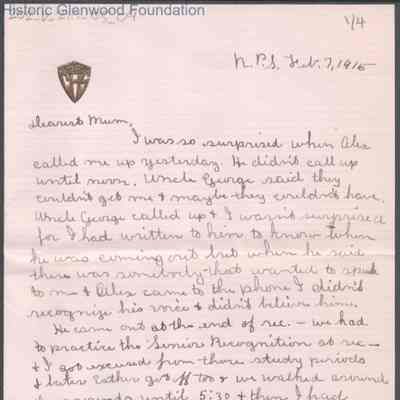 Historic Glenwood Foundation
1/4
N.P.S. Feb. 7, 1915
Dearest Mum,
I was so surprised when Alex
called me up yesterday. He didn't call up
until noon. Uncle George said they
couldn't get me & maybe they couldn't have.
Uncle George called up & I wasn't surprised
for I had written to him to know when
he was coming out but when he said
there was somebody that wanted to speak
to me & Alex came to the phone I didn't
recognize his voice & didn't believe him.
He came out at the end of rec. – we had
to practice the Senior Recognition at rec –
& I got excused from those study periods
& later Esther got off too & we walked around
until 5:30 & then I had